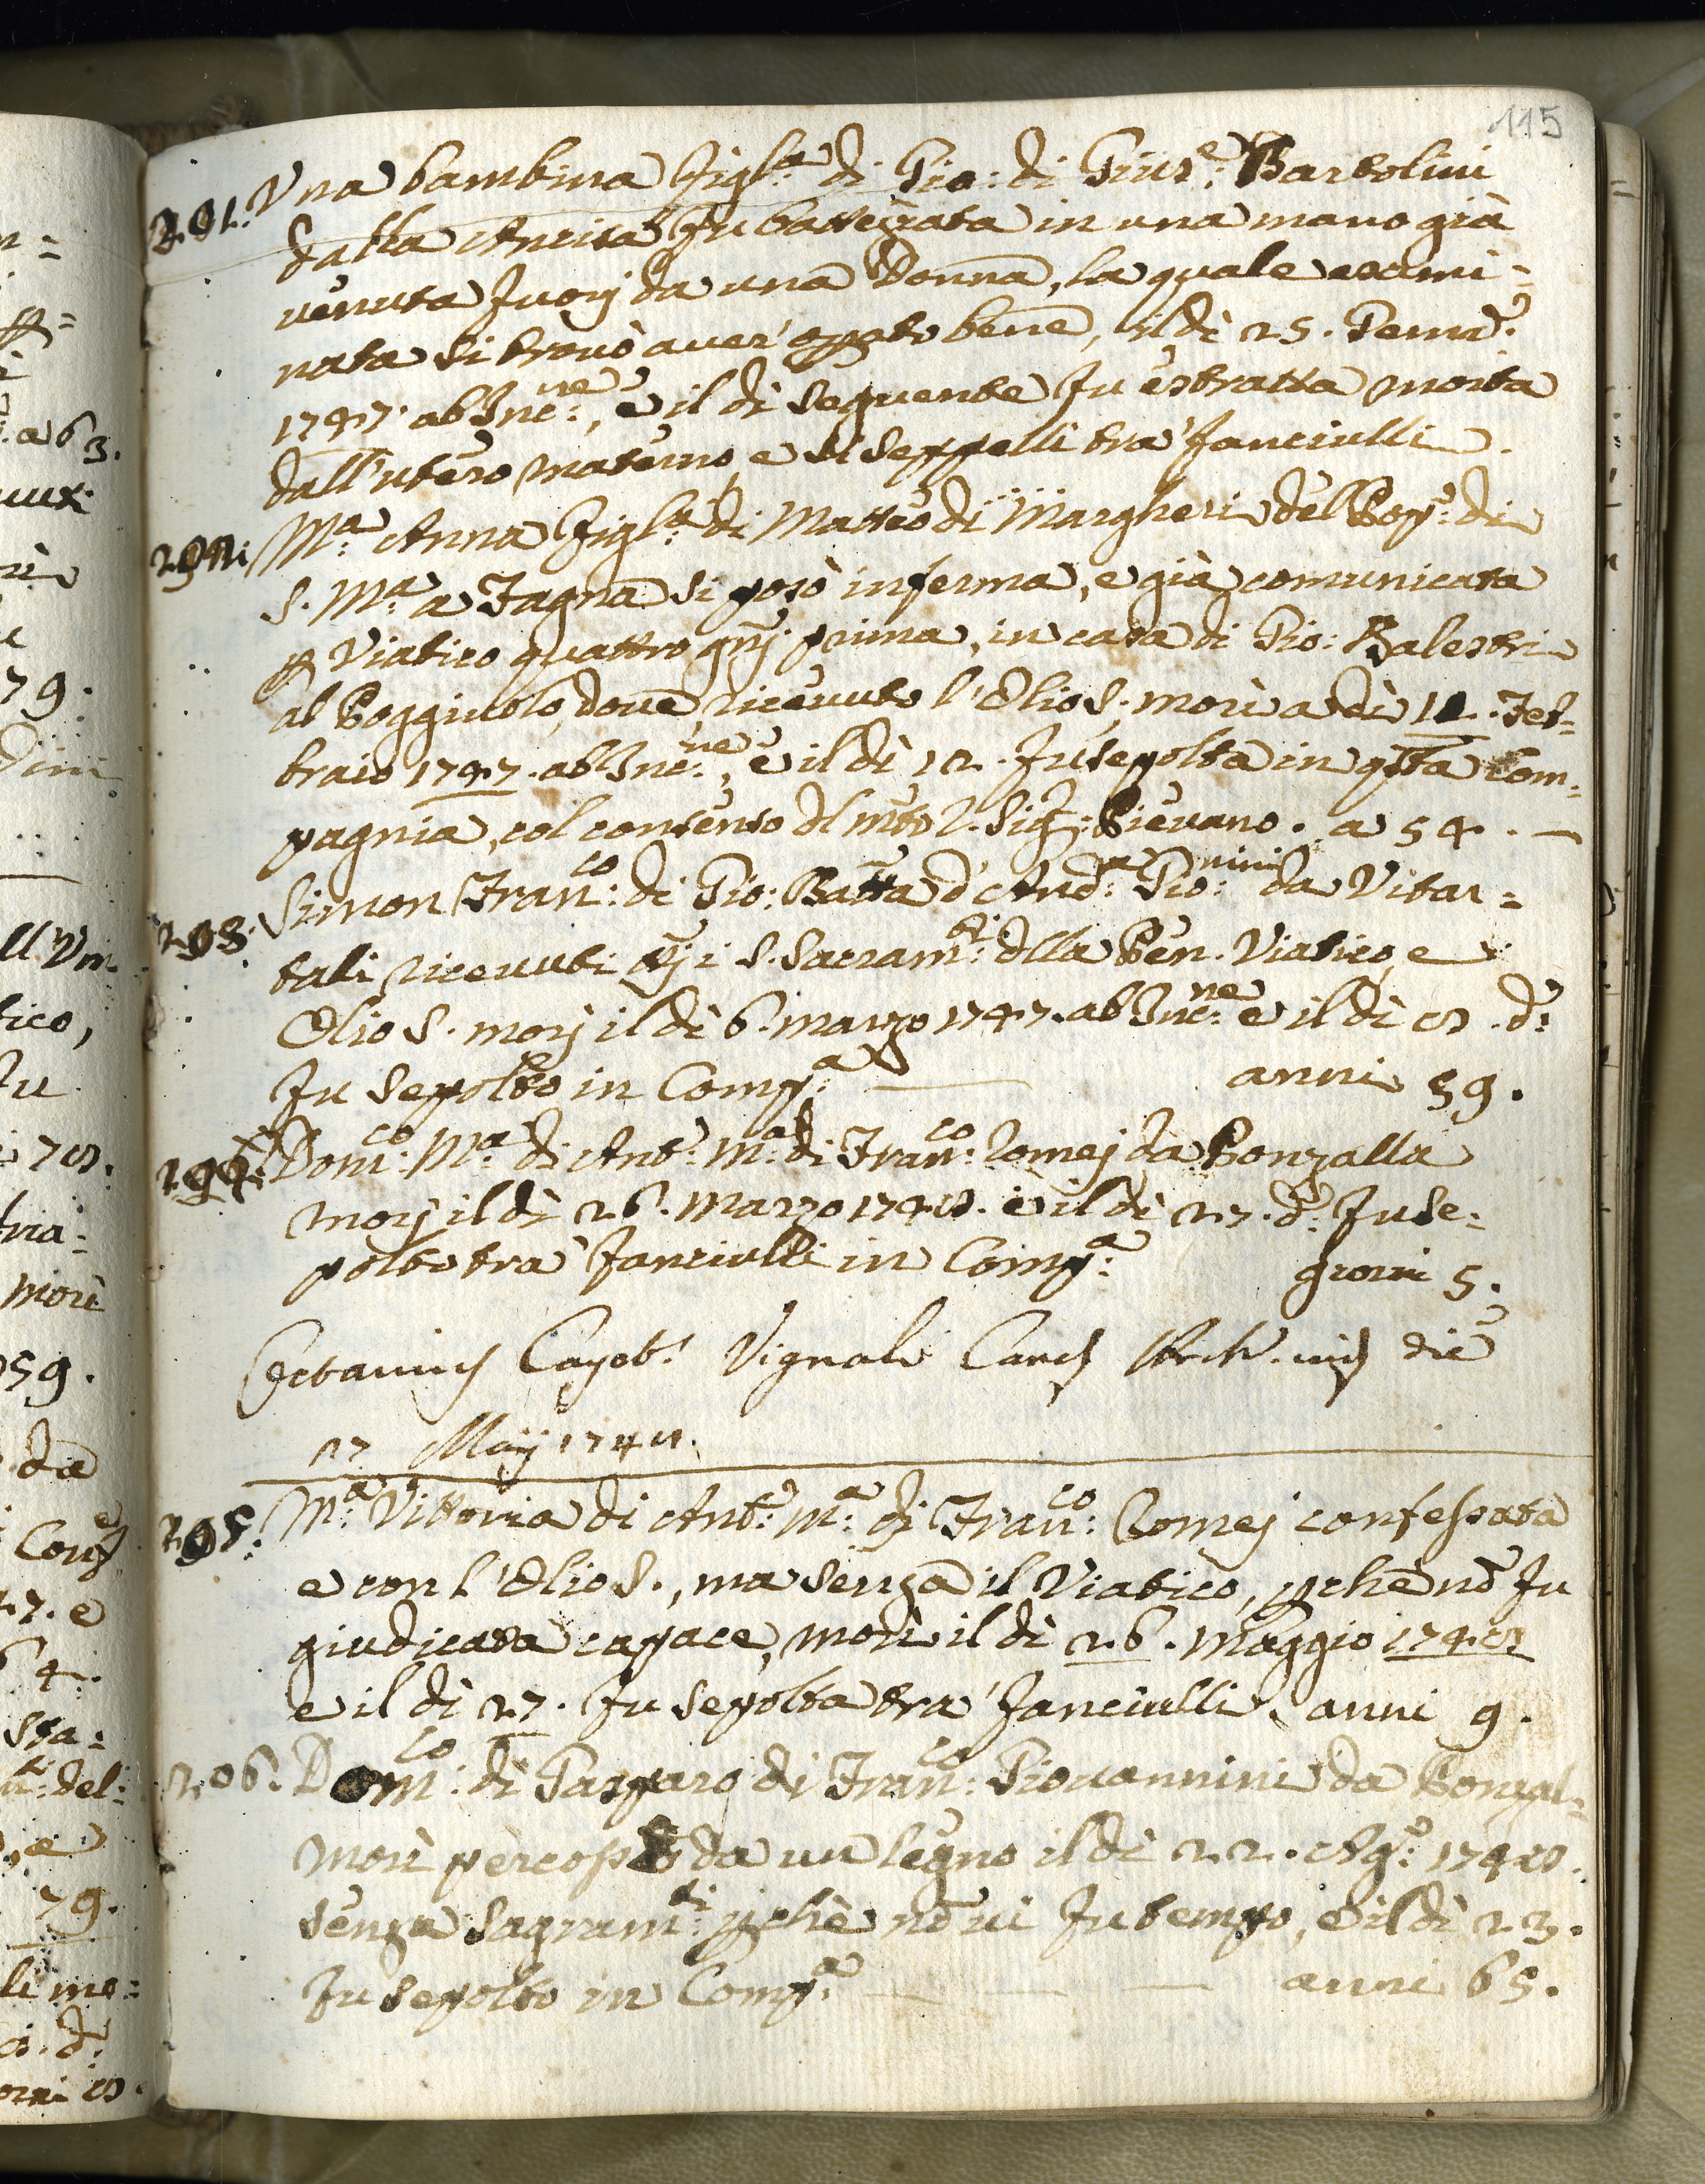 115
201. Una bambina figl.a di Gio: di Gius.e Bartolini
dalla Ancisa fu battezzata in una mano già
venuta fuorj da una Donna, la quale esami=
nata si trovò aver' opṛato bene, il dì 25. Genn.o
1747. ab Inc.ne, e il dì seguente fu estratta morta
dall'utero materno, e si seppellì tra' fanciulli.
202: M.a Anna figl.a di Matteo di Margheri del Pop.o di
S. M.a a Fagna si posò inferma, e già comunicata
p Viatico quattro gnj prima, in casa di Gio: Balestri
al Poggiuolo, dove ricevuto l'Olio S. morì a dì 11. Feb=
braio 1747. ab Inc.ne, e il dì 12. fu sepolta in qsta Com=
pagnia, col consenso dl mto R. Sig.r Pievano. a 54. —
203. Simon Fran.co di Gio: Batta d'And.a Gio:nini da Vitar=
tali ricevuti i S. Sacram.ti dlla Pen. Viatico, e
Olio S. morj il dì 6. marzo 1747. ab Inc.ne e il dì 8. d.o
fu sepolto in Comp.a — anni 59.
204: Dom.co M.a di Ant.o M.a di Fran.co Romej da Ronzalla
morj il dì 26. Marzo 1748. e il dì 27. d.o fu se=
polto tra' fanciulli in Comp.a giorni 5.
Octavius Cajet. Vignali Canc.s Arch. vis. die
17 Maij 1748.
205: M.a Vittoria di Ant.o M.a di Fran.co Romej confessata
e con l'Olio S., ma senza il Viatico, pchè nõ fu
giudicata capace, morì il dì 26. Maggio 1748
e il dì 27. fu sepolta tra' fanciulli. anni 9.
206. Dom.co di Gasparo di Fran.co Giovannini da Ronzal=
morì percosso da un legno il dì 22. Ag.o 1748.
senza Sagram.ti pchè nõ vi fu tempo, e il dì 23.
fu sepolto in Comp.a — — anni 65.